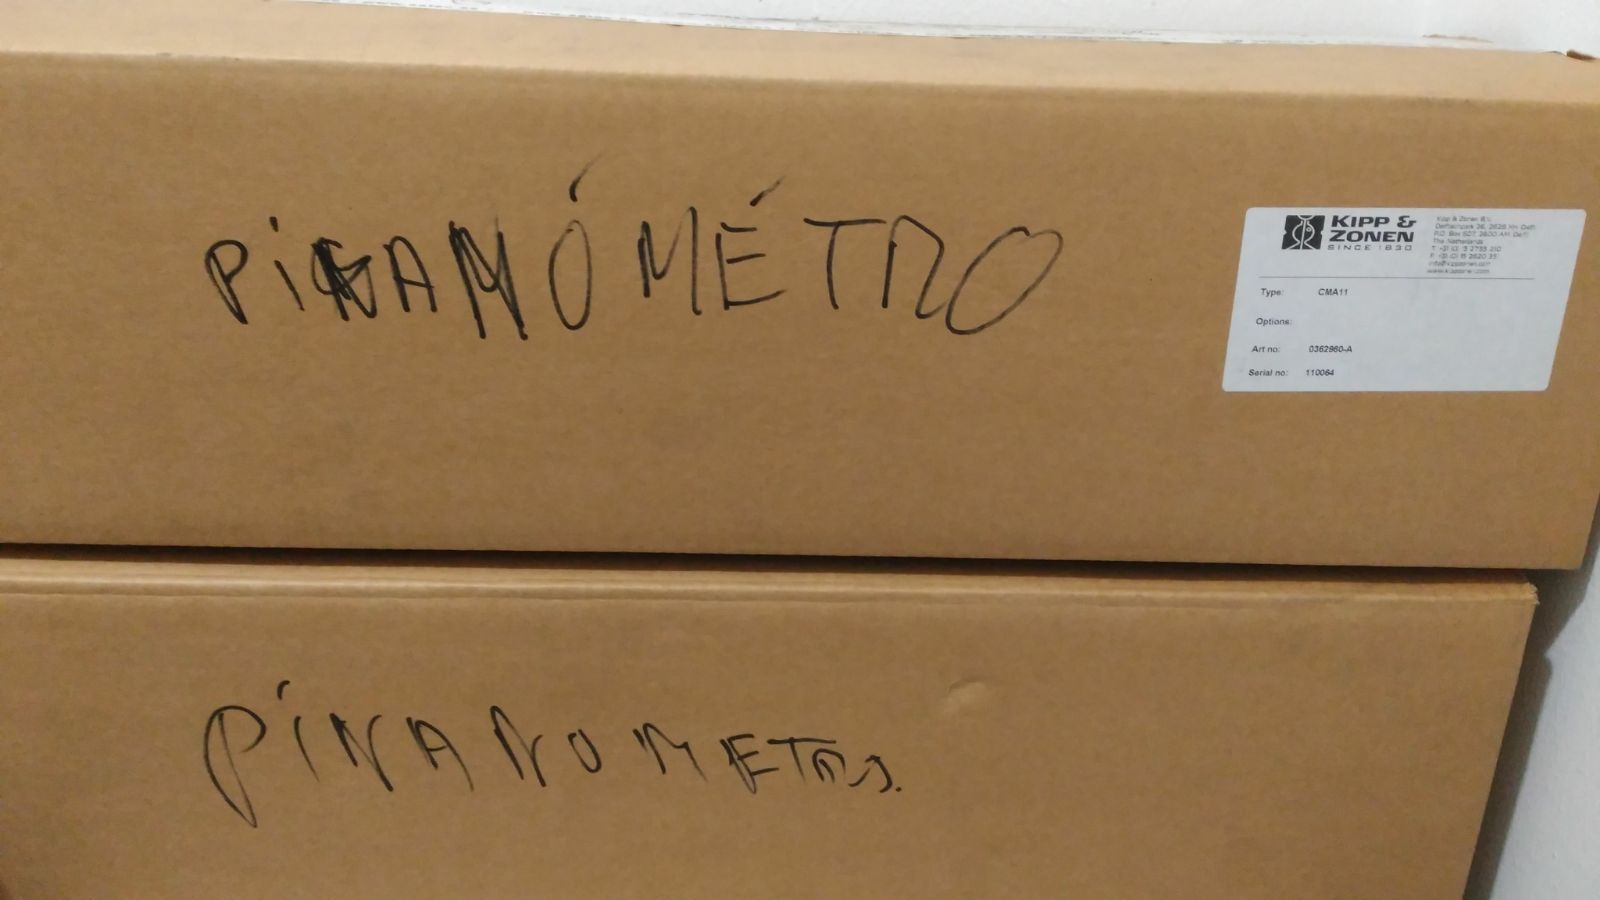 PiNANÓMÉTRO
KIPP &
ZONEN
SINCE 1830
Kipp & Zonen B.V.
Delftechpark 36, 2628 XH Delft
P.O. Box 507, 2600 AM Delft
The Netherlands
T: +31 (0) 15 2755 210
F: +31 (0) 15 2620 351
info@kippzonen.com
www.kippzonen.com
Type: CMA11
Options:
Art no: 0362960-A
Serial no: 110064
PiNANOMETRO.